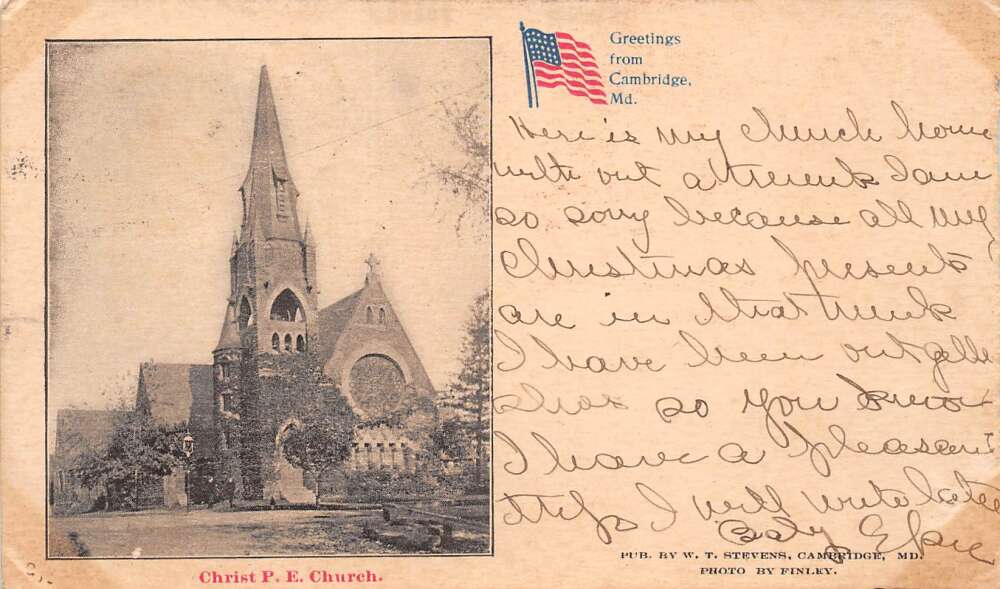 Greetings
from
Cambridge,
Md.
Here is my church home
with out a trunk I am
so sorry because all my
Christmas presents
are in that trunk
I have been out
so you know
I have a pleasant
trip I will write later
PUB. BY W. T. STEVENS, CAMBRIDGE, MD.
PHOTO BY FINLEY.
Christ P. E. Church.